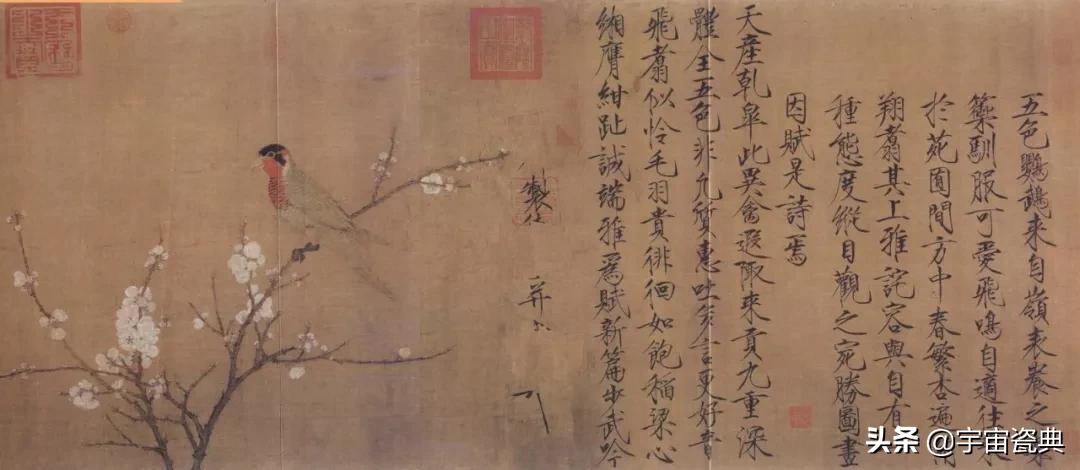 五色鸚鵡來自嶺表養之
籞馴服可愛飛鳴自適往來
於苑囿間方中春繁杏遍開
翔翥其上雅詫容與自有
種態度縱目觀之宛勝圖畫
因賦是詩焉
天產乾皋此異禽遐陬來貢九重深
體全五色非凡質惠吐多言更好音
飛翥似怜毛羽貴徘徊如飽稻粱心
緗膺紺趾誠端雅為賦新篇步武吟
製
并
头条 @宇宙瓷典